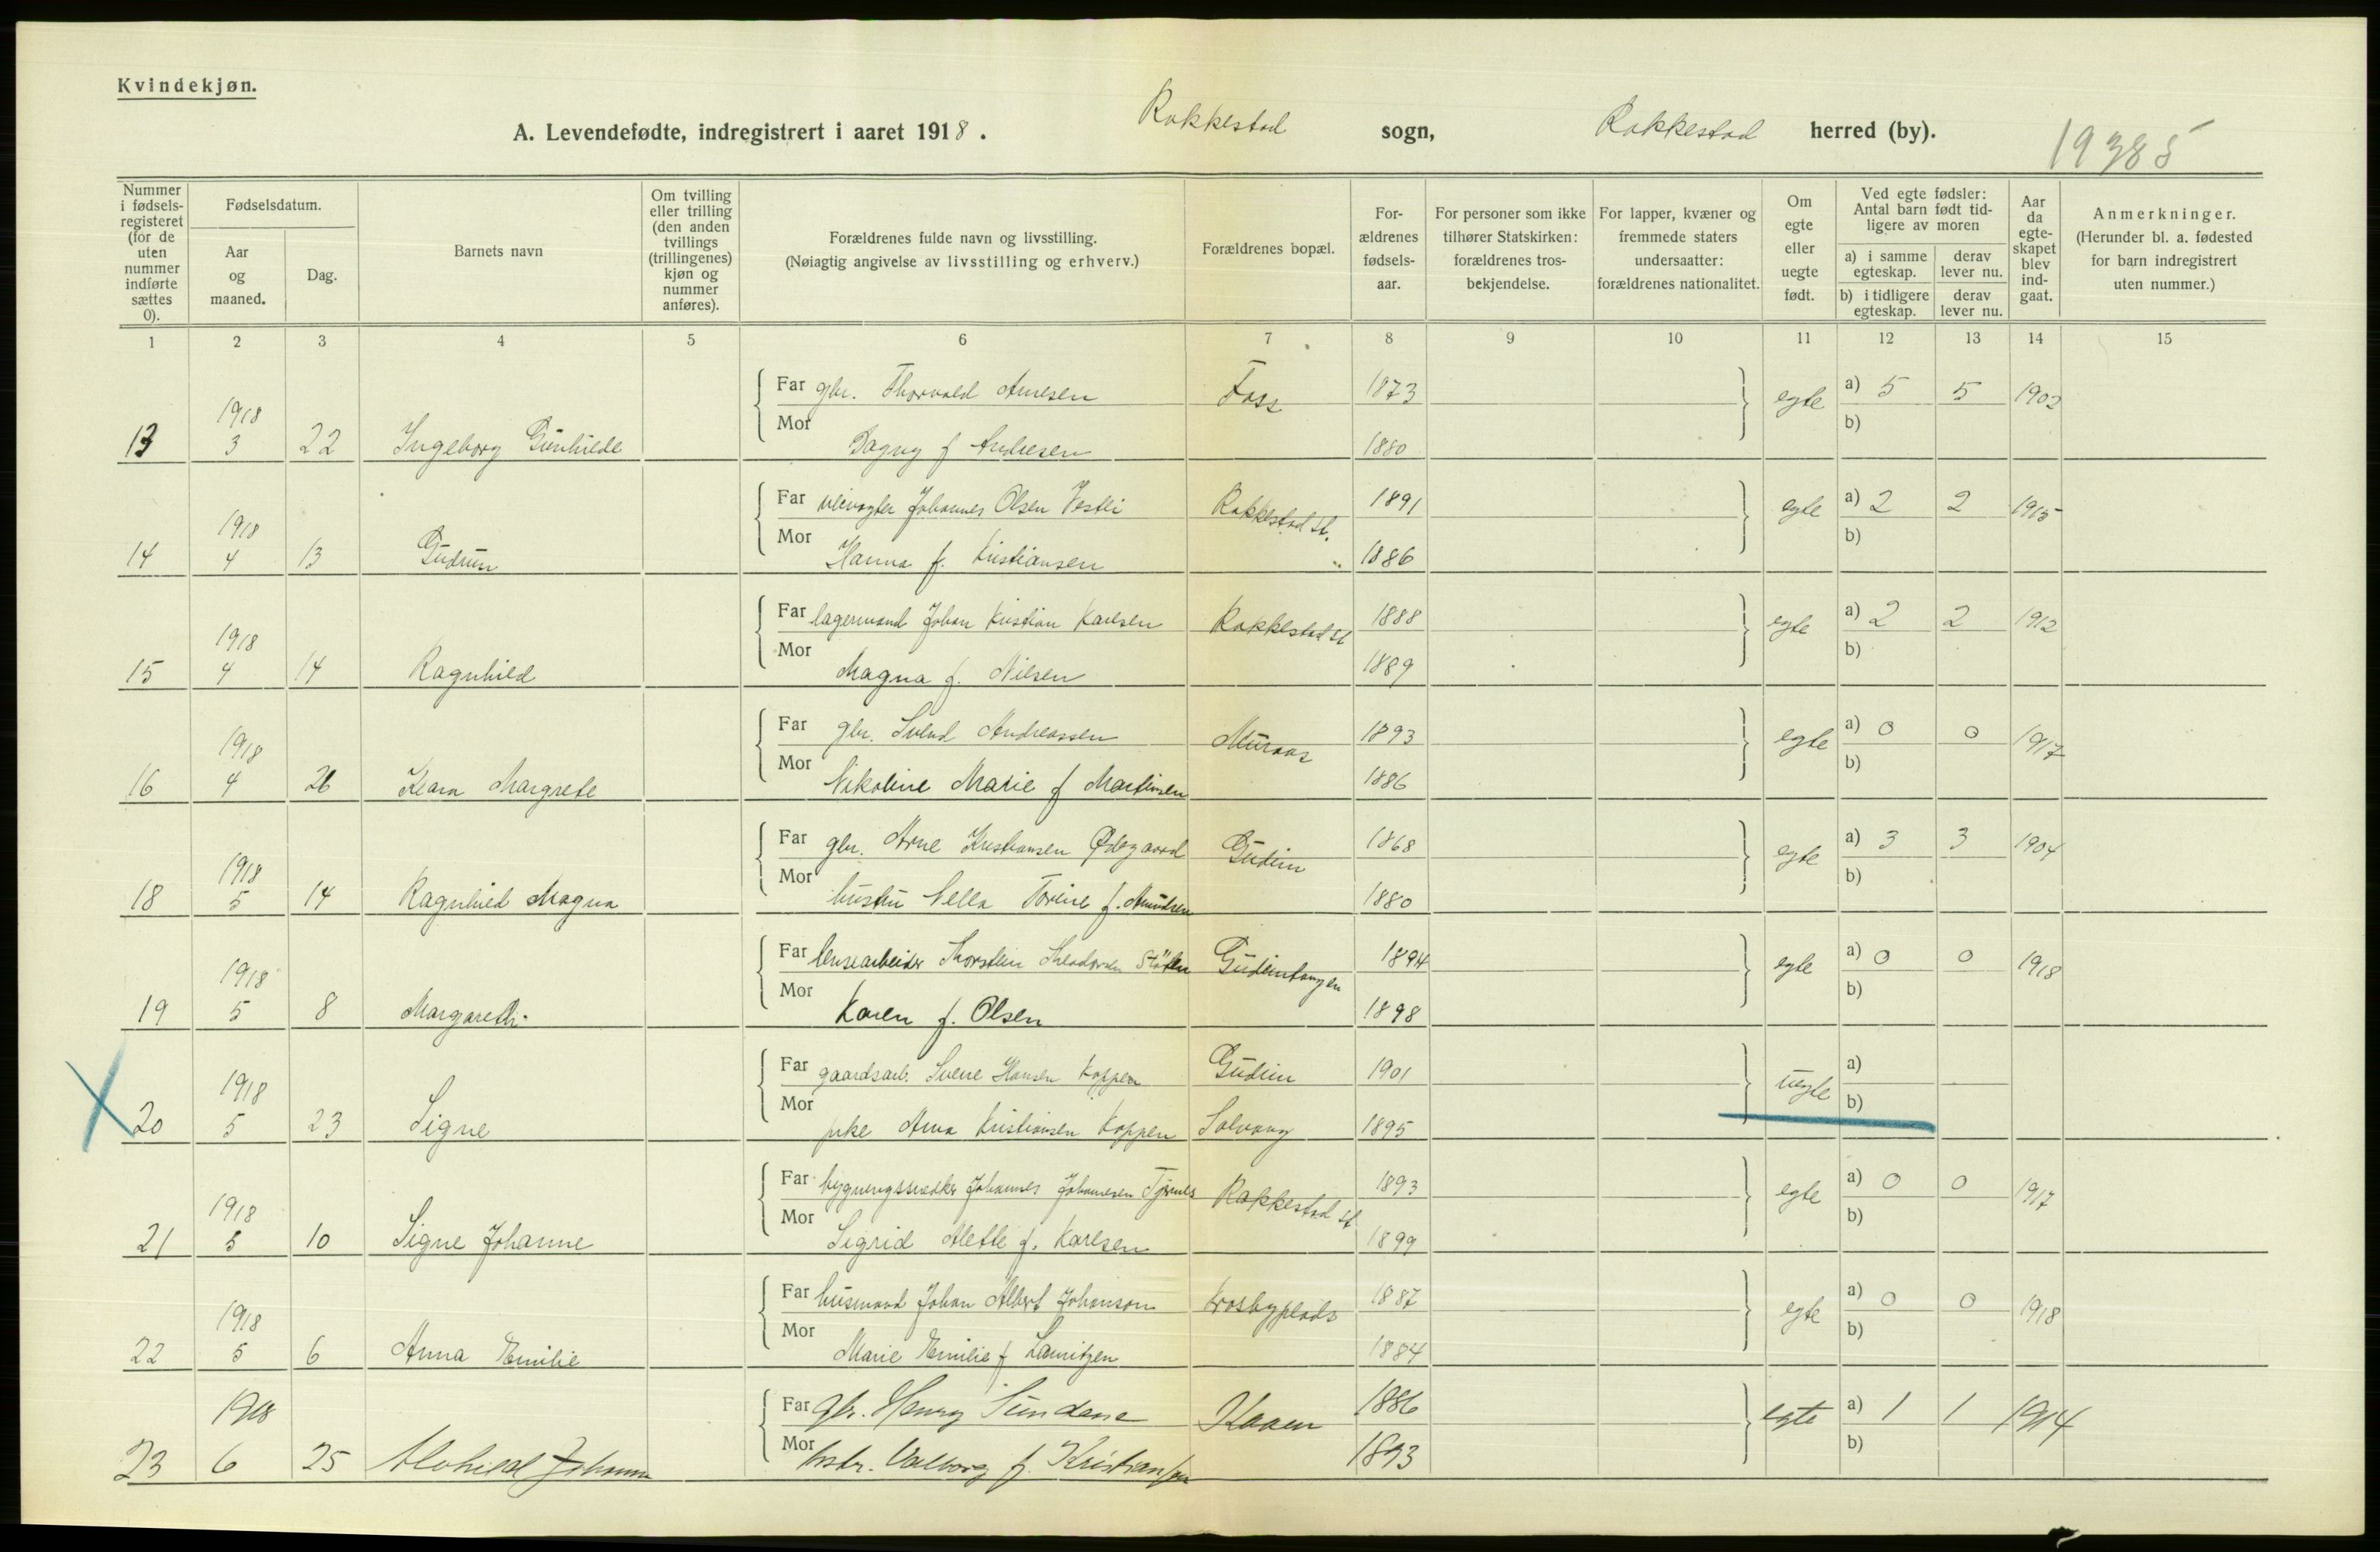 Kvindekjøn.
A. Levendefødte, indregistrert i aaret 1918. Rakkestad sogn, Rakkestad herred (by).
19385
Nummer i fødsels-registeret (for de uten nummer indførte sættes 0).
Fødselsdatum.
Aar og maaned.
Dag.
Barnets navn
Om tvilling eller trilling (den anden tvillings (trillingenes) kjøn og nummer anføres).
Forældrenes fulde navn og livsstilling.
(Nøiagtig angivelse av livsstilling og erhverv.)
Forældrenes bopæl.
For-ældrenes fødsels-aar.
For personer som ikke tilhører Statskirken: forældrenes tros-bekjendelse.
For lapper, kvæner og fremmede staters undersaatter: forældrenes nationalitet.
Om egte eller uegte født.
Ved egte fødsler: Antal barn født tid-ligere av moren
a) i samme egteskap.
derav lever nu.
b) i tidligere egteskap.
derav lever nu.
Aar da egte-skapet blev ind-gaat.
Anmerkninger.
(Herunder bl. a. fødested for barn indregistrert uten nummer.)
1 2 3 4 5 6 7 8 9 10 11 12 13 14 15
Far gbr. Thorvald Arnesen Foss 1873 egte a) 5 5 1902
13 1918 3 22 Ingeborg Gunhilde Mor Dagny f Andresen 1880 b)
Far veivogter Johannes Olsen Vestli Rakkestad st. 1891 egte a) 2 2 1915
14 1918 4 13 Gudrun Mor Hanna f. Kristiansen " 1886 b)
Far lagermand Johan Kristian Karlsen Rakkestad st 1888 egte a) 2 2 1912
15 1918 4 14 Ragnhild Mor Magna f. Nilsen 1889 b)
Far gbr. Svend Andreassen Muraas 1893 egte a) 0 0 1917
16 1918 4 26 Klara Margrete Mor Nikoline Marie f Martinsen 1886 b)
Far gbr. Arne Kristiansen Ødegaard Gudim 1868 egte a) 3 3 1904
18 1918 5 14 Ragnhild Magna Mor hustru Nella Torine f. Amundsen 1880 b)
Far lensearbeider Thorstein Theodorsen Gudimtangen 1894 egte a) 0 0 1918
19 1918 5 8 Margareth Mor Karen f. Olsen 1898 b)
Far gaardsarb. Sverre Hansen Koppen Gudim 1901 uegte a)
20 1918 5 23 Signe Mor pike Anna Kristiansen Koppen Solvang 1895 b)
Far bygningssnedker Johannes Johannesen Tjernes Rakkestad st 1893 egte a) 0 0 1917
21 1918 5 10 Signe Johanne Mor Sigrid Alette f. Karlsen 1899 b)
Far husmand Johan Albert Johanson Krosbyplads 1887 egte a) 0 0 1918
22 1918 5 6 Anna Emilie Mor Marie Emilie f Lauritzen 1884 b)
Far gbr. Henry Sundane Kaaen 1886 egte a) 1 1 1914
23 1918 6 25 Alvhild Johanne Mor hstr. Valborg f. Kristiansen 1893 b)